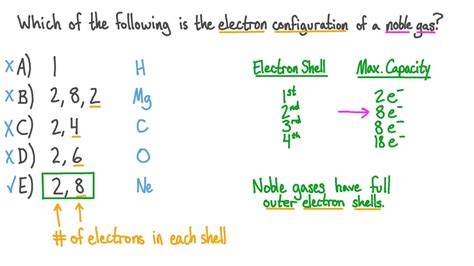 Which of the following is the electron configuration of a noble gas?
x A) 1 H
x B) 2, 8, 2 Mg
x C) 2, 4 C
x D) 2, 6 O
✓ E) 2, 8 Ne
# of electrons in each shell
Electron Shell Max. Capacity
1st 2e⁻
2nd 8e⁻
3rd 8e⁻
4th 18e⁻
Noble gases have full
outer electron shells.